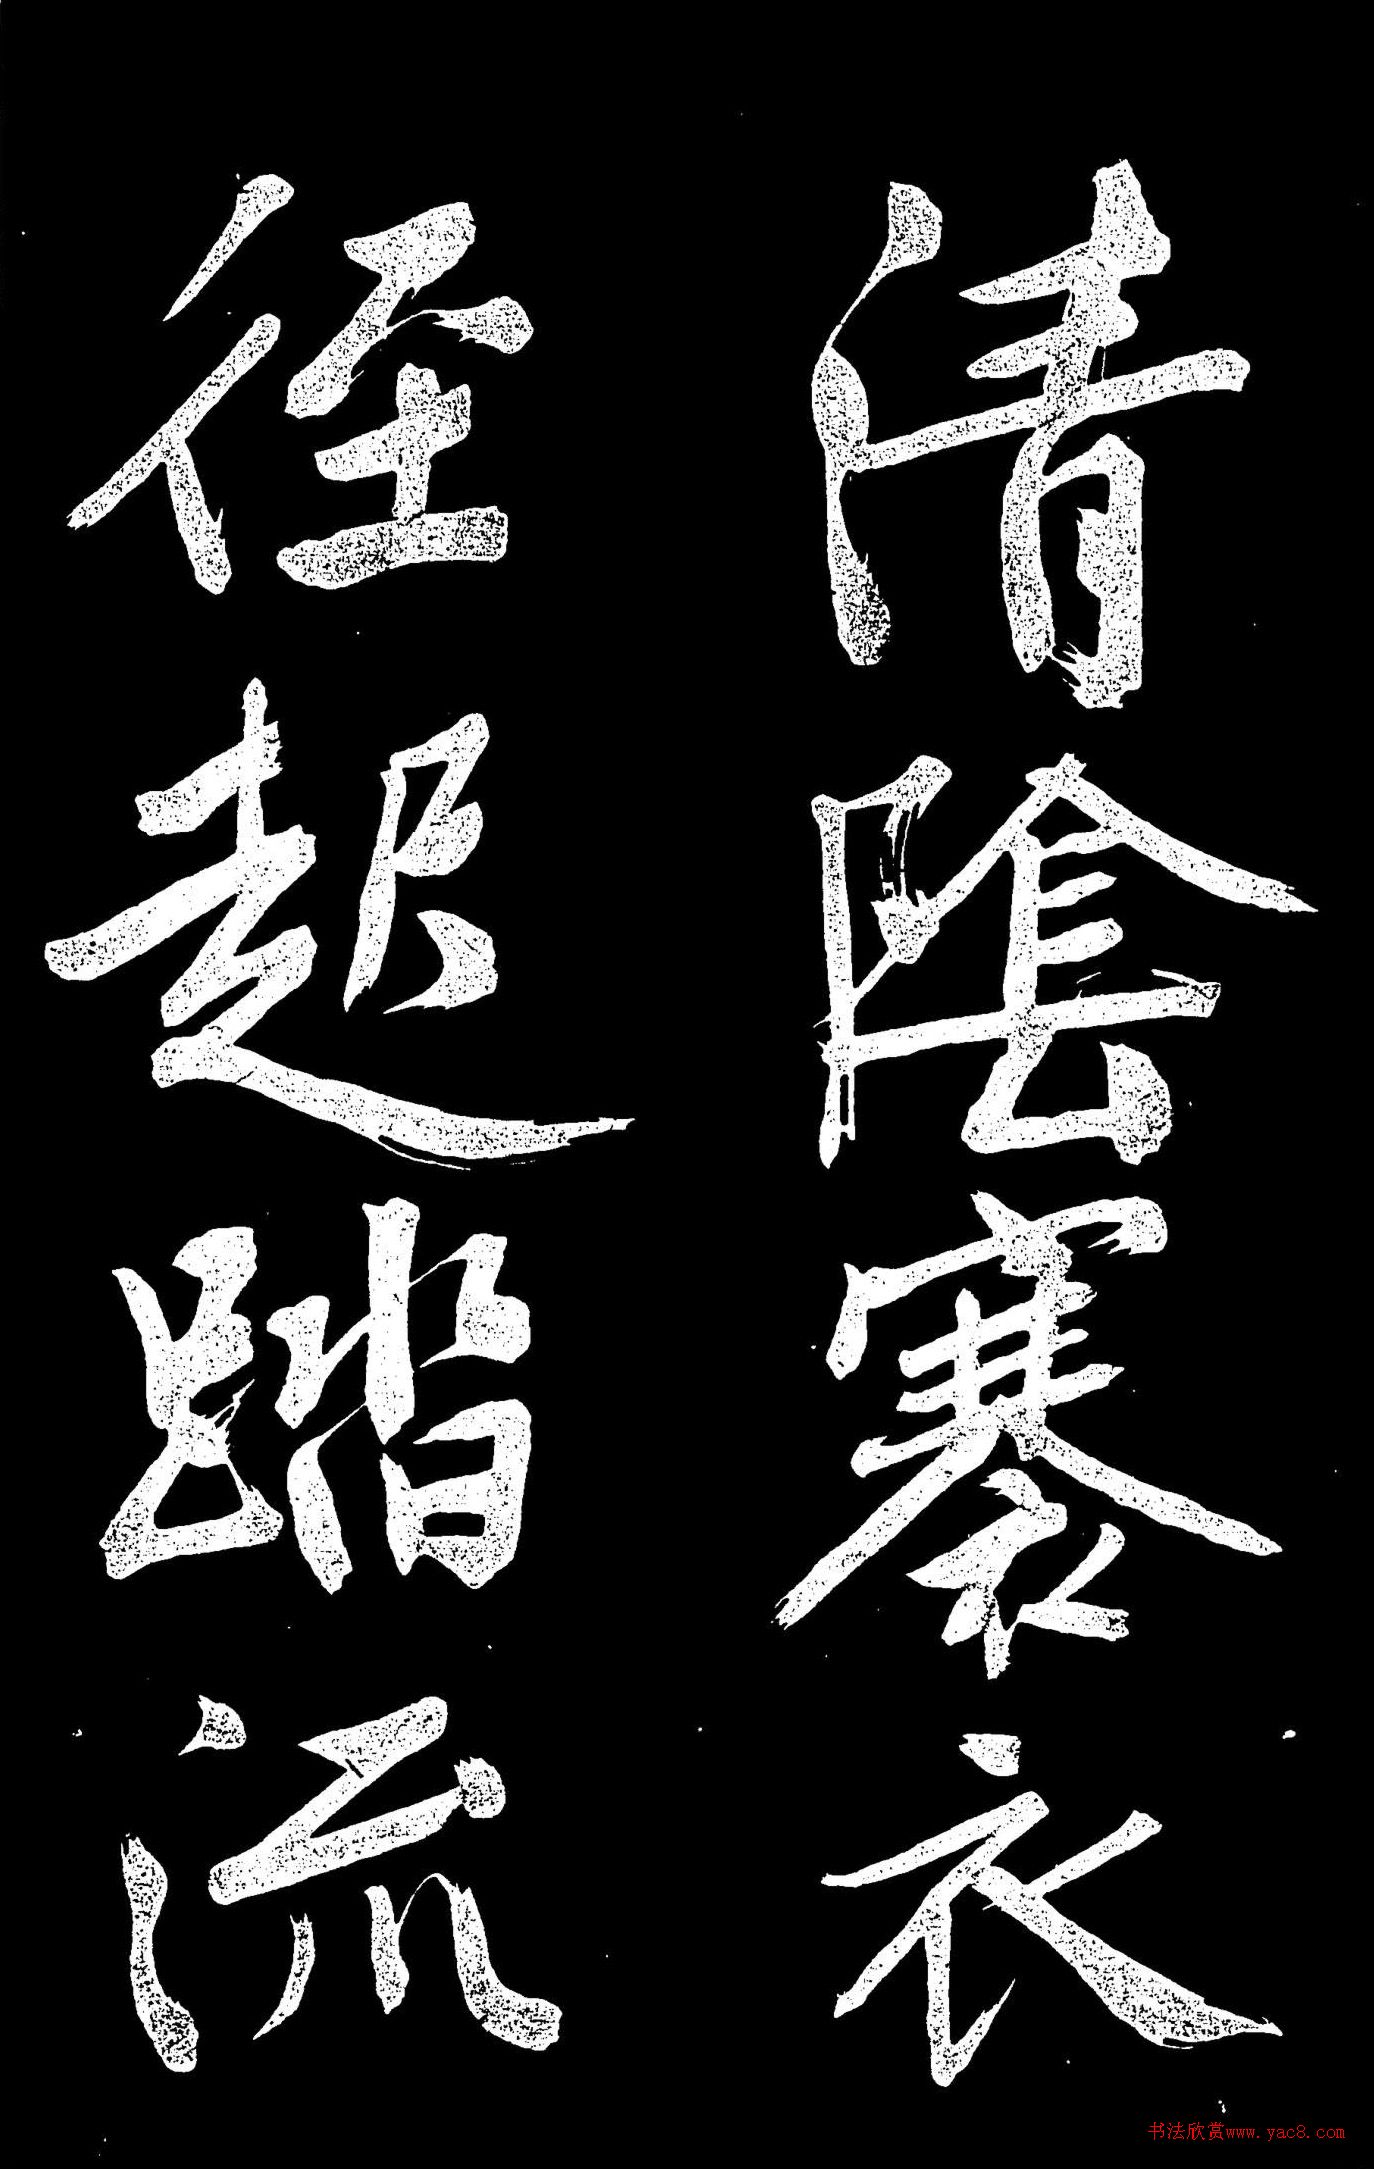 清陰褰衣
徑起踏流
书法欣赏www.yac8.com